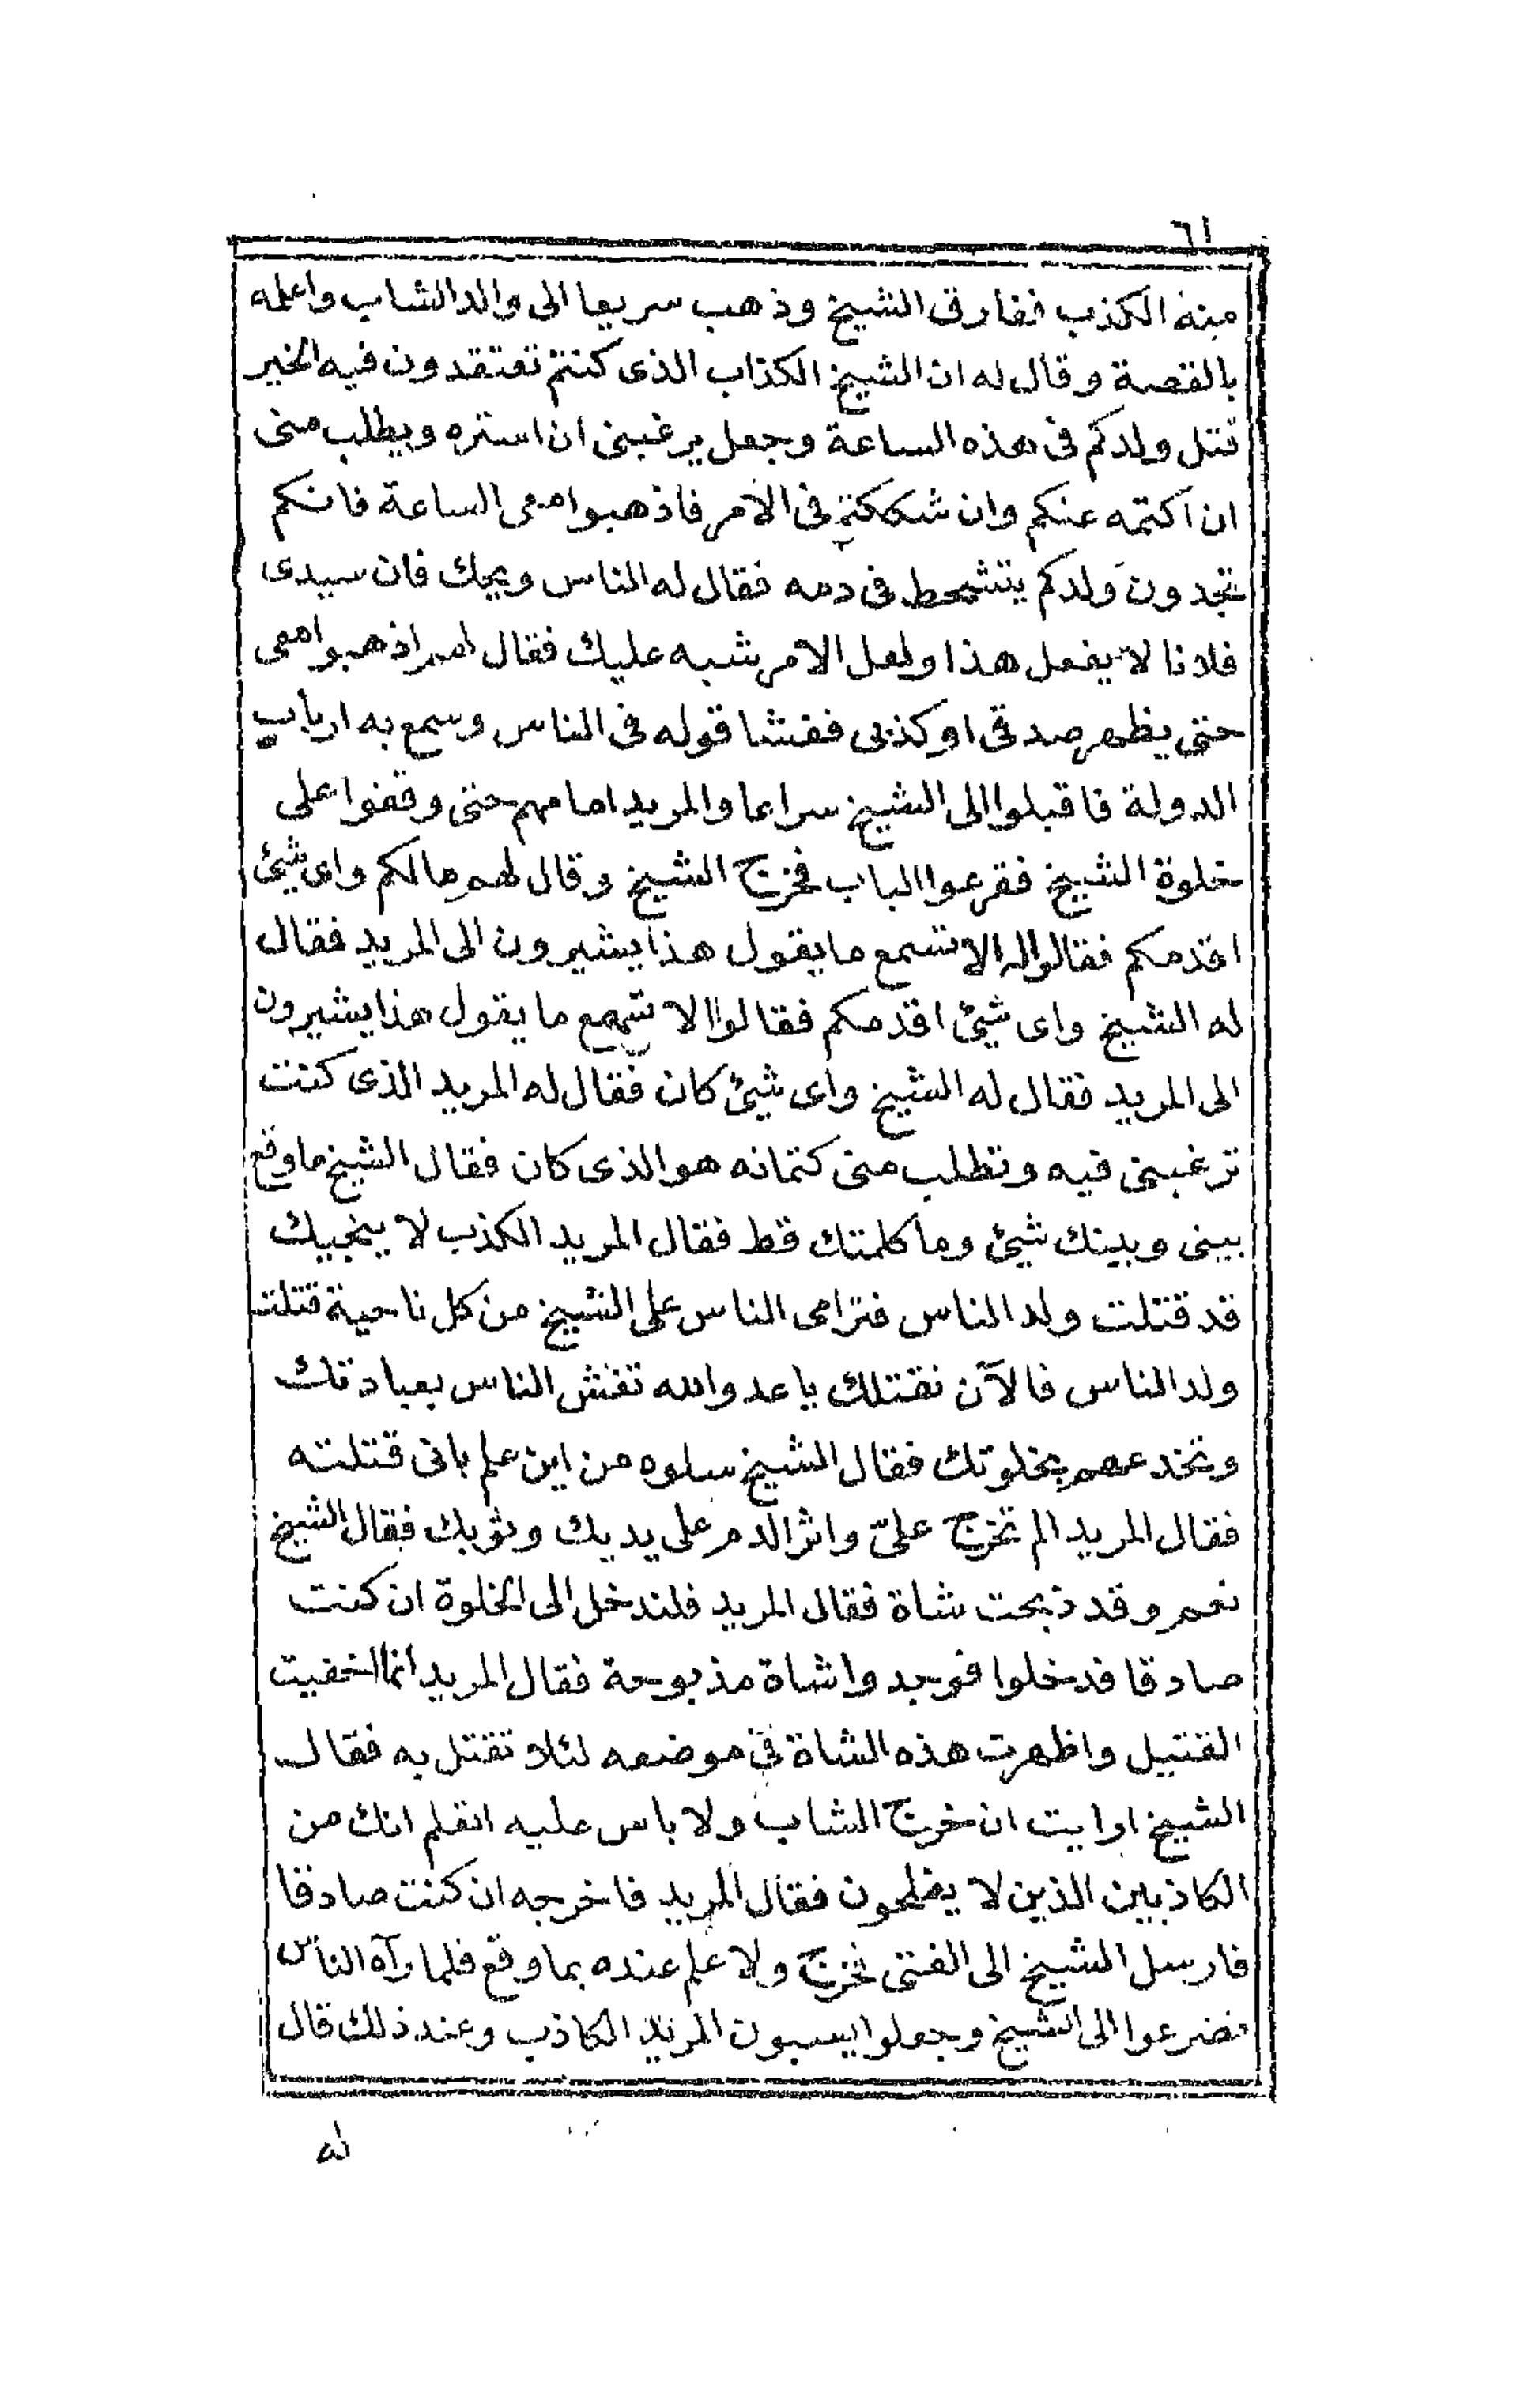 ٦١
منه الكذب ففارق الشيخ وذهب سريعا الى والد الشاب واعلمه
بالقصة وقال له ان الشيخ الكذاب الذى كنتم تعتقدون فيه الخير
قتل ولدكم فى هذه الساعة وجعل يرغبنى ان استره ويطلب منى
ان اكتمه عنكم وان شككتم فى الامر فاذهبوا معى الساعة فانكم
تجدون ولدكم يتشحط فى دمه فقال له الناس ويحك فان سيدى
فلانا لا يفعل هذا ولعل الامر شبه عليك فقال لهم اذهبوا معى
حتى يظهر صدقى او كذبى ففشا قوله فى الناس وسمع به ارباب
الدولة فاقبلوا الى الشيخ سراعا والمريد امامهم حتى وقفوا على
خلوة الشيخ فقرعوا الباب فخرج الشيخ وقال لهم مالكم واى شيئ
اقدمكم فقالوا له الا تسمع ما يقول هذا يشيرون الى المريد فقال
له الشيخ واى شيئ اقدمكم فقالوا الا تسمع ما يقول هذا يشيرون
الى المريد فقال له الشيخ واى شيئ كان فقال له المريد الذى كنت
ترغبنى فيه وتطلب منى كتمانه هو الذى كان فقال الشيخ ما وقع
بينى وبينك شيئ وما كلمتك قط فقال المريد الكذب لا ينجيك
قد قتلت ولد الناس فترامى الناس على الشيخ من كل ناحية قتلت
ولد الناس فالآن نقتلك يا عدو الله تغش الناس بعبادتك
وتخدعهم بخلوتك فقال الشيخ سلوه من اين علم بانى قتلته
فقال المريد الم تخرج علىّ واثر الدم على يديك وثوبك فقال الشيخ
نعم وقد ذبحت شاة فقال المريد فلندخل الى الخلوة ان كنت
صادقا فدخلوا فوجدوا شاة مذبوحة فقال المريد انما اخفيت
القتيل واظهرت هذه الشاة فى موضعه لئلا تقتل به فقال
الشيخ ارايت ان خرج الشاب ولا باس عليه اتعلم انك من
الكاذبين الذين لا يفلحون فقال المريد فاخرجه ان كنت صادقا
فارسل الشيخ الى الفتى فخرج ولا علم عنده بما وقع فلما رآه الناس
تضرعوا الى الشيخ وجعلوا يسبون المريد الكاذب وعند ذلك قال
له